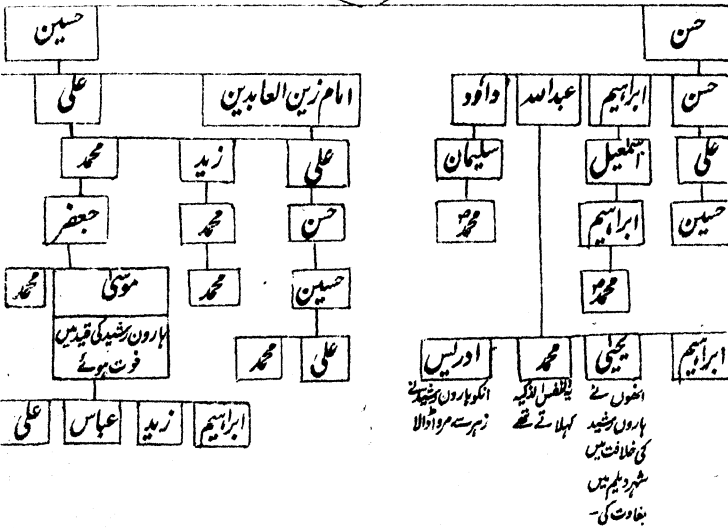 حسن
حسین
حسن
ابراہیم
عبداللہ
داؤد
امام زین العابدین
علی
علی
اسمٰعیل
سلیمان
علی
زید
محمد
حسین
ابراہیم
محمدؐ
حسن
محمد
جعفر
محمدؐ
حسین
محمد
موسیٰ
محمد
ہارون رشید کی قید میں
فوت ہوئے
ابراہیم
یحییٰ
محمد
ادریس
علی
محمد
انھوں نے
ہارون رشید
کی خلافت میں
شہر دیلم میں
بغاوت کی۔
نفس الذکیہ
کہلاتے تھے
انکو ہارون رشید نے
زہر سے مروا ڈالا
ابراہیم
زید
عباس
علی